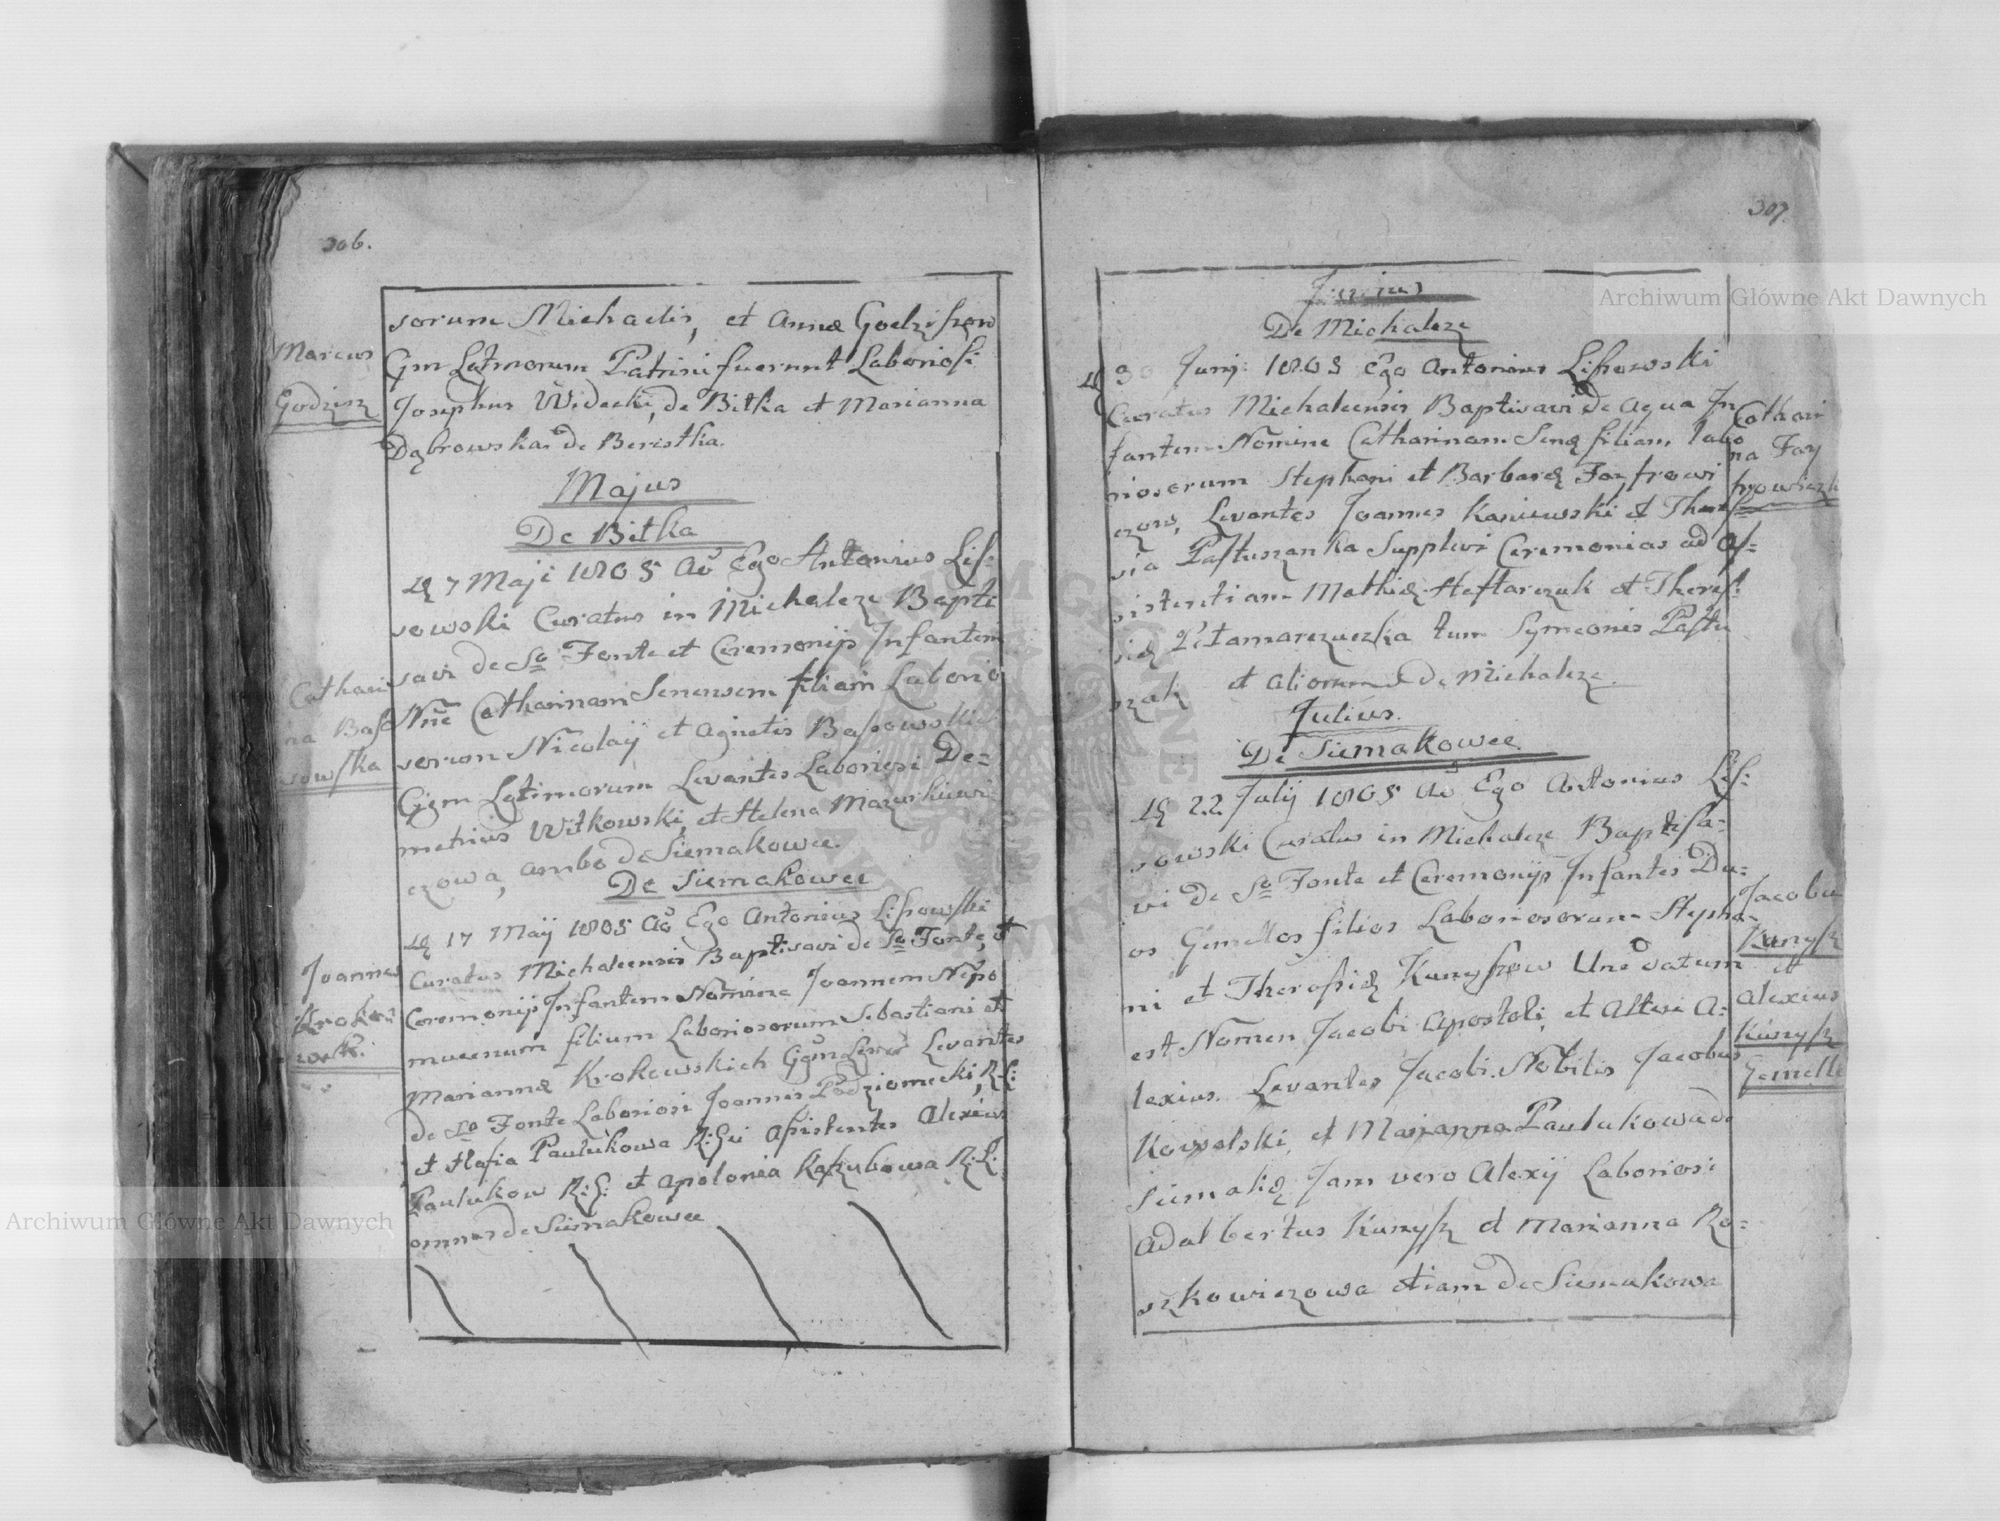 306.
Marcus
Godzisz
sorum Michaelis, et Annæ Godziszow
Cjm Lgtmorum Patrini fuerunt Laboriosi
Josephus Widecki, de Bitka et Marianna
Dąbrowska de Berestka.
Majus
De Bitka
7 Maji 1805 Ao Ego Antonius Lis-
sowski Curatus in Michalcze Bapti
savi de So Fonte et Ceremonijs Infantem
Nne Catharinam Senensem filiam Laborio
sorum Nicolaij et Agnetis Bassowskich
Cjgm Lgtimorum Levantes Laboriosi De-
metrius Witkowski, et Helena Mazurkiewi
czowa, ambo de Siemakowce.
Cathari
na Bass
sowska
De Siemakowce
17 Maij 1805 Ao Ego Antonius Lissowski
Curatus Michalcensis Baptisavi de So Fonte, et
Ceremonijs Infantem Nomine Joannem Nepo
mucenum filium Laboriosorum Sebastiani et
Mariannæ Krokowskich Levantes
de So Fonte Laboriosi Joannes Podziomecki, R.L:
et Hafia Paulukowa R:Gi Assistentes Alexius
Paulukow R:G: et Apolonia Kaszubowa R:L:
omnes de Siemakowce
Joannes
Krokow
wski.
307.
Junius
De Michalcze
30 Junij 1805 Ego Antonius Lissowski
Curatus Michalcensis Baptisavi de Aqua In
fantem Nomine Catharinam Senę filiam labo
riosorum Stephani et Barbarę Fayfrowi
czow, Levantes Joannes Kaniewski et There
sia Pastuszanka Supplevi Ceremonias ad As=
sistentiam Mathię Heftarczuk et Theres
się tum Symeonis Pastu
szak et aliorum de Michalcze.
Cathari
na Fay
frowiczk
Julius.
De Siemakowce
22 Julij 1805 Ao Ego Antonius Lis:
sowski Curatus in Michalcze Baptisa=
vi de So Fonte et Ceremonijs Infantes Du=
os Gemellos filios Laboriosorum Stepha-
ni et Theresię Kunyszow Uni datum
est Nomen Jacobi Apostoli, et Alteri A=
lexius. Levantes Jacobi Nobilis Jacobus
Kowalski, et Marianna Paulukowa de
Siemakię Jam vero Alexij Laboriosi
Adalbertus Kunysz et Marianna Ro=
szkowiczowa etiam de Siemakowa
Jacobu
Kunysz
et
Alexius
Kunysz
Gemelli
Archiwum Główne Akt Dawnych
Archiwum Główne Akt Dawnych